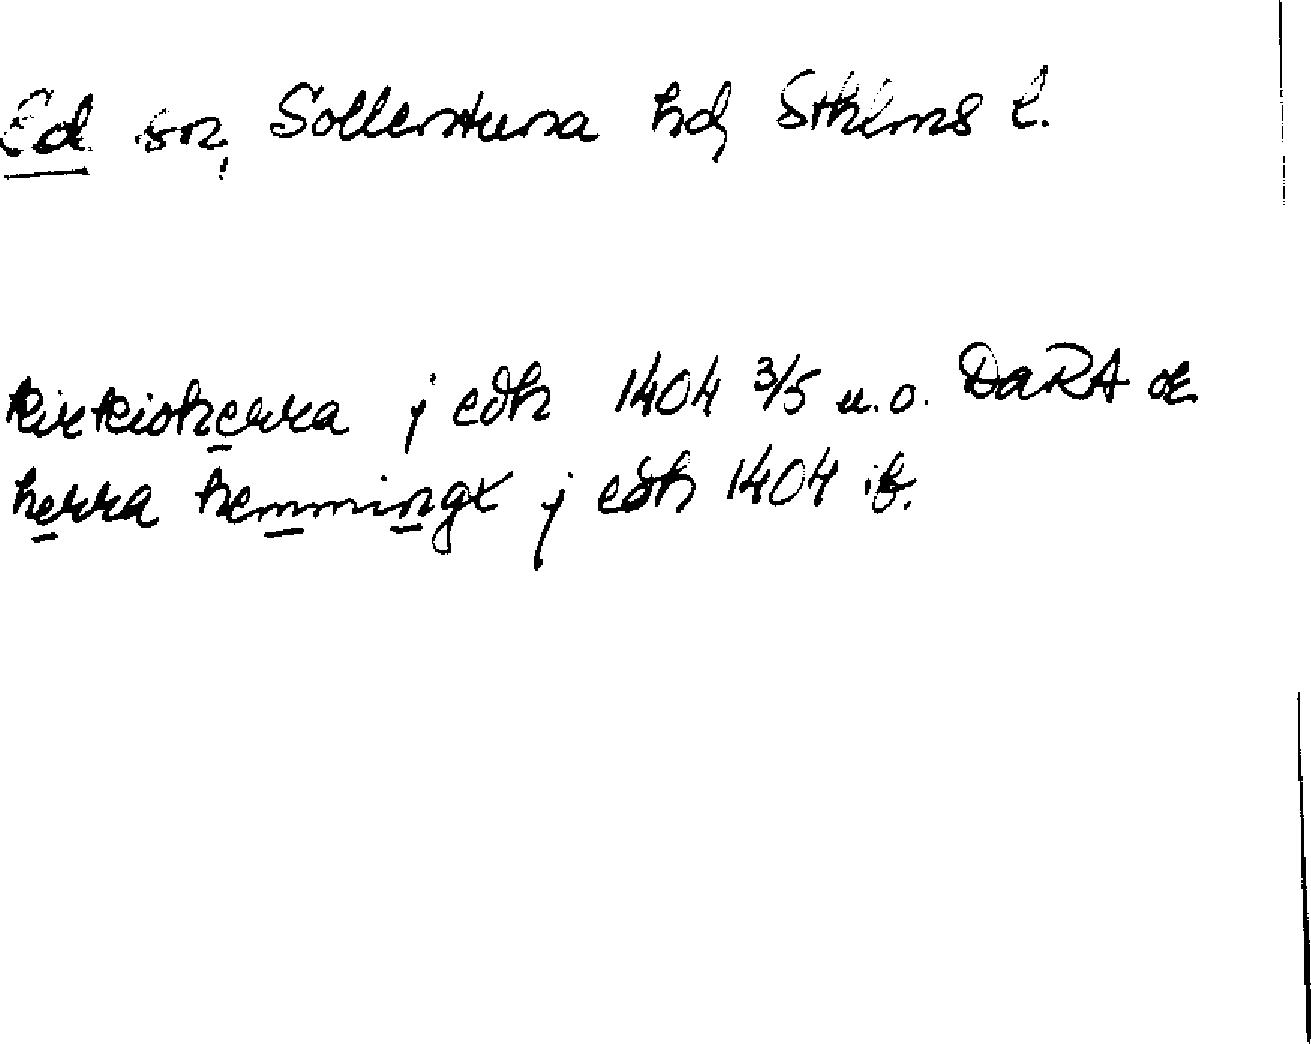 Ed sn, Sollentuna hd, Sthlms l.
kirkioherra j edh 1404 3/5 u.o. DaRA or.
herra hemmingx j edh 1404 ib.